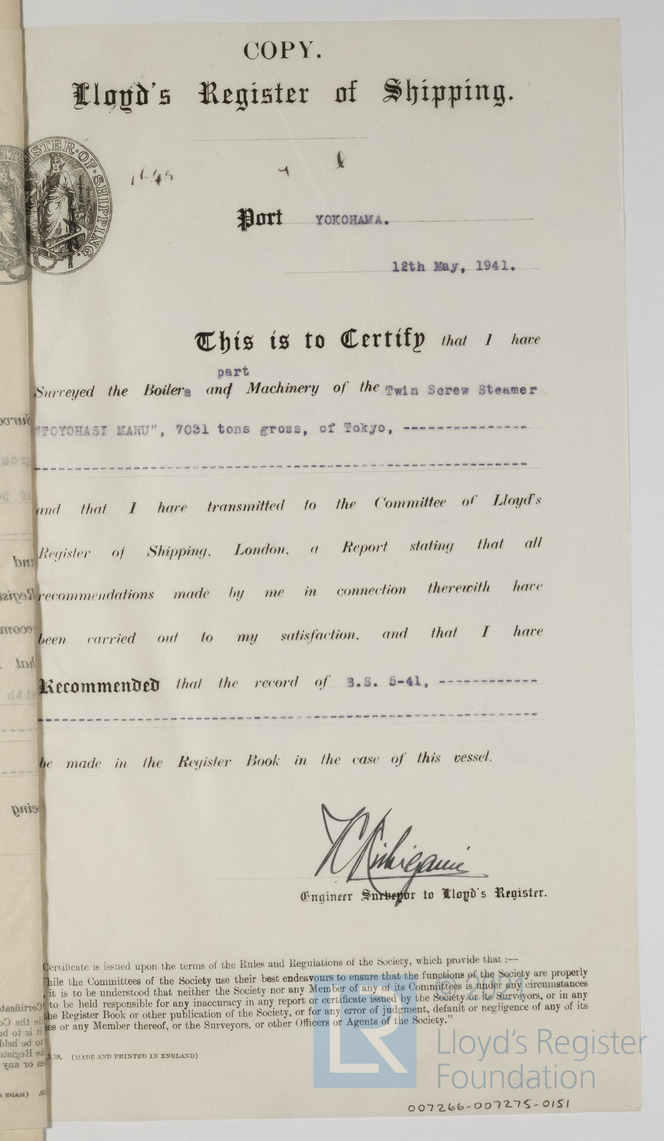 COPY.
Lloyd's Register of Shipping.
REGISTER·OF·SHIPPING.
Port YOKOHAMA.
12th May, 1941.
This is to Certify that I have
part
Surveyed the Boilers and Machinery of the Twin Screw Steamer
"TOYOHASI MARU", 7031 tons gross, of Tokyo, ----------------
------------------------------------------------------------
and that I have transmitted to the Committee of Lloyd's
Register of Shipping, London, a Report stating that all
recommendations made by me in connection therewith have
been carried out to my satisfaction, and that I have
Recommended that the record of B.S. 5-41, -------------
------------------------------------------------------------
be made in the Register Book in the case of this vessel.
Engineer Surveyor to Lloyd's Register.
Certificate is issued upon the terms of the Rules and Regulations of the Society, which provide that :—
While the Committees of the Society use their best endeavours to ensure that the functions of the Society are properly
it is to be understood that neither the Society nor any Member of any of its Committees is under any circumstances
to be held responsible for any inaccuracy in any report or certificate issued by the Society or its Surveyors, or in any
the Register Book or other publication of the Society, or for any error of judgment, default or negligence of any of its
or any Member thereof, or the Surveyors, or other Officers or Agents of the Society."
(MADE AND PRINTED IN ENGLAND)
LR
Lloyd's Register
Foundation
007266-007275-0151